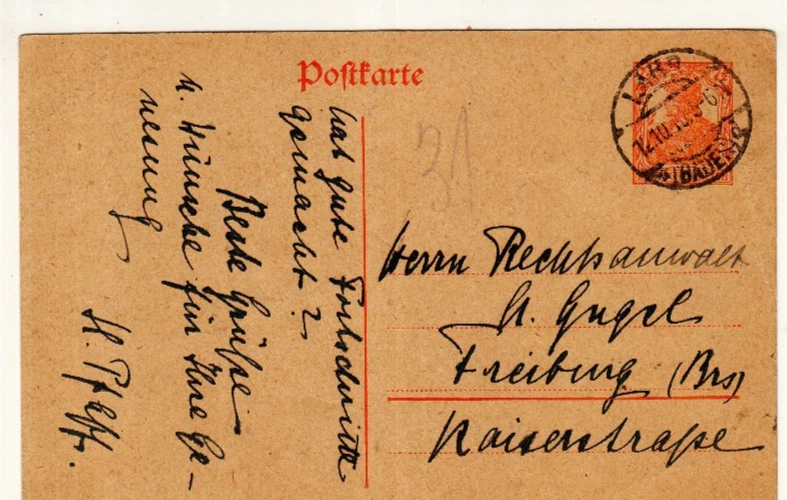 Postkarte
LAHR
12.10.
(BADEN)
31
hat gute Fortschritte
gemacht?
Beste Grüße
u. Wünsche für Ihre Ge-
nesung
H. Pfaff.
Herrn Rechtsanwalt
A. Gugel
Freiburg (Brs)
Kaiserstraße